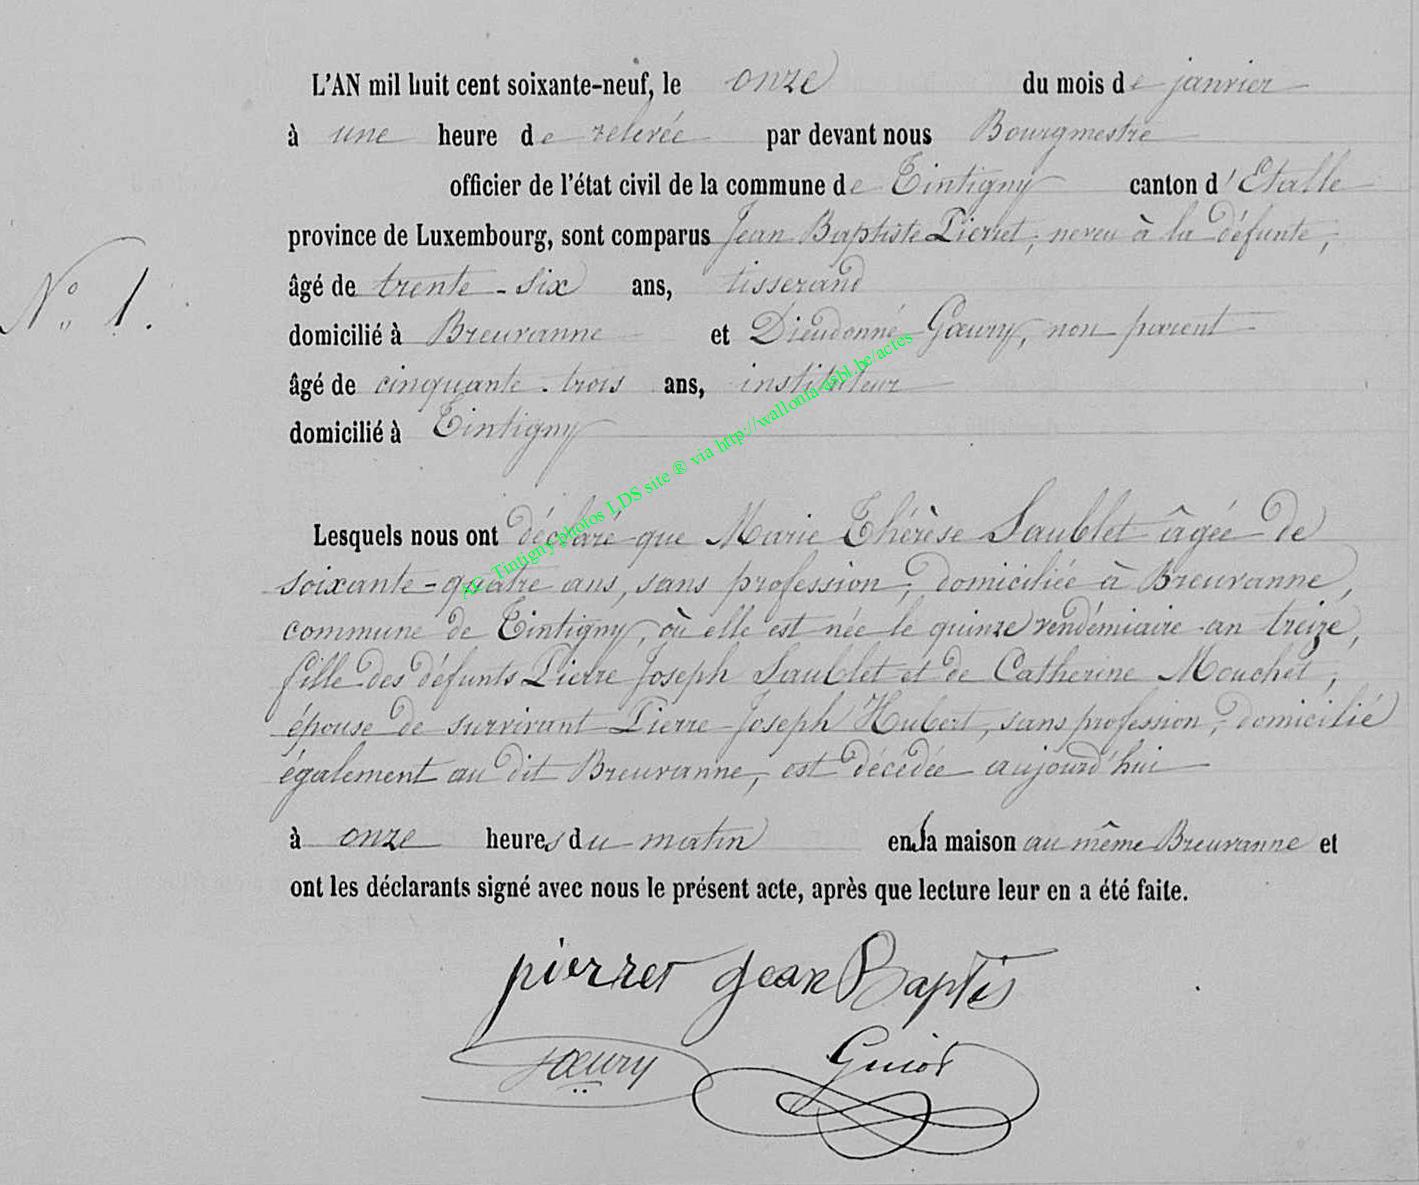 L'AN mil huit cent soixante-neuf, le onze du mois de janvier
à une heure de relevée par devant nous Bourgmestre
officier de l'état civil de la commune de Tintigny canton d'Etalle
province de Luxembourg, sont comparus Jean Baptiste Pierret, neveu à la défunte,
âgé de trente-six ans, tisserand
N° 1.
domicilié à Breuvanne et Dieudonné Gœury, non parent
âgé de cinquante-trois ans, instituteur
domicilié à Tintigny
AC Tintigny photos LDS site ® via http://wallonia-asbl.be/actes
Lesquels nous ont déclaré que Marie Thérèse Saublet âgée de
soixante-quatre ans, sans profession, domiciliée à Breuvanne,
commune de Tintigny, où elle est née le quinze vendémiaire an treize,
fille des défunts Pierre Joseph Saublet et de Catherine Mouchet,
épouse de survivant Pierre-Joseph Hubert, sans profession, domicilié
également au dit Breuvanne, est décédée aujourd'hui
à onze heures du matin en la maison au même Breuvanne et
ont les déclarants signé avec nous le présent acte, après que lecture leur en a été faite.
pierret jean Baptis
Gœury Guiot